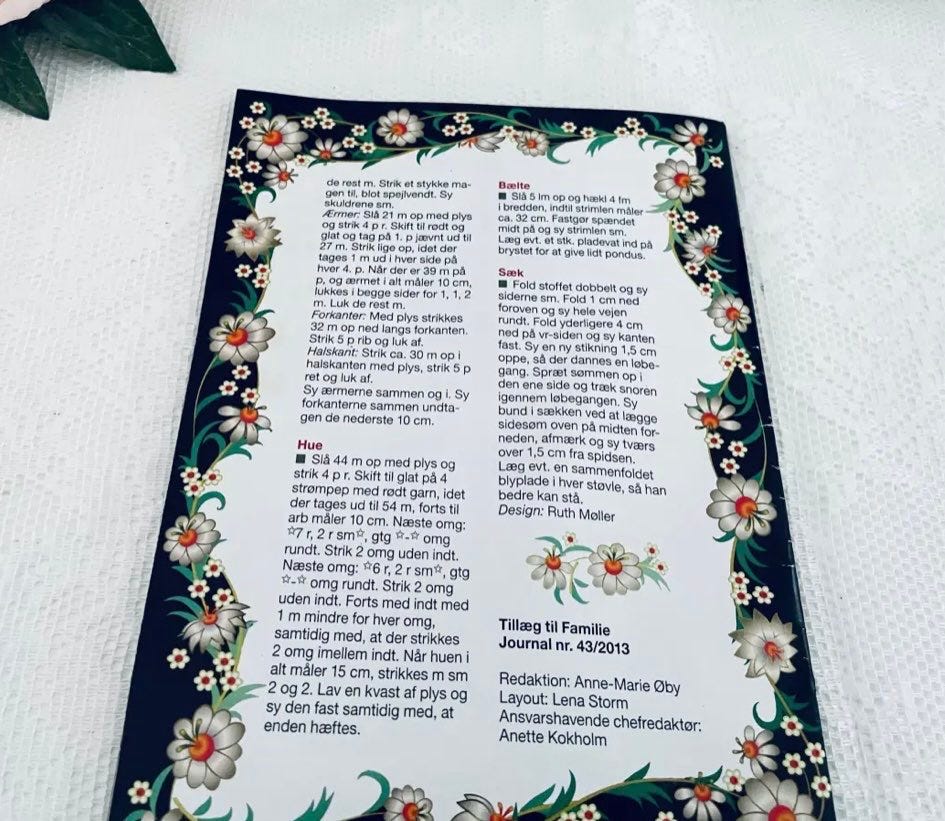 de rest m. Strik et stykke ma-
gen til, blot spejlvendt. Sy
skuldrene sm.
Ærmer: Slå 21 m op med plys
og strik 4 p r. Skift til rødt og
glat og tag på 1. p jævnt ud til
27 m. Strik lige op, idet der
tages 1 m ud i hver side på
hver 4. p. Når der er 39 m på
p, og ærmet i alt måler 10 cm,
lukkes i begge sider for 1, 1, 2
m. Luk de rest m.
Forkanter: Med plys strikkes
32 m op ned langs forkanten.
Strik 5 p rib og luk af.
Halskant: Strik ca. 30 m op i
halskanten med plys, strik 5 p
ret og luk af.
Sy ærmerne sammen og i. Sy
forkanterne sammen undta-
gen de nederste 10 cm.
Hue
■ Slå 44 m op med plys og
strik 4 p r. Skift til glat på 4
strømpep med rødt garn, idet
der tages ud til 54 m, forts til
arb måler 10 cm. Næste omg:
☆7 r, 2 r sm☆, gtg ☆-☆ omg
rundt. Strik 2 omg uden indt.
Næste omg: ☆6 r, 2 r sm☆, gtg
☆-☆ omg rundt. Strik 2 omg
uden indt. Forts med indt med
1 m mindre for hver omg,
samtidig med, at der strikkes
2 omg imellem indt. Når huen i
alt måler 15 cm, strikkes m sm
2 og 2. Lav en kvast af plys og
sy den fast samtidig med, at
enden hæftes.
Bælte
■ Slå 5 lm op og hækl 4 fm
i bredden, indtil strimlen måler
ca. 32 cm. Fastgør spændet
midt på og sy strimlen sm.
Læg evt. et stk. pladevat ind på
brystet for at give lidt pondus.
Sæk
■ Fold stoffet dobbelt og sy
siderne sm. Fold 1 cm ned
foroven og sy hele vejen
rundt. Fold yderligere 4 cm
ned på vr-siden og sy kanten
fast. Sy en ny stikning 1,5 cm
oppe, så der dannes en løbe-
gang. Spræt sømmen op i
den ene side og træk snoren
igennem løbegangen. Sy
bund i sækken ved at lægge
sidesøm oven på midten for-
neden, afmærk og sy tværs
over 1,5 cm fra spidsen.
Læg evt. en sammenfoldet
blyplade i hver støvle, så han
bedre kan stå.
Design: Ruth Møller
Tillæg til Familie
Journal nr. 43/2013
Redaktion: Anne-Marie Øby
Layout: Lena Storm
Ansvarshavende chefredaktør:
Anette Kokholm